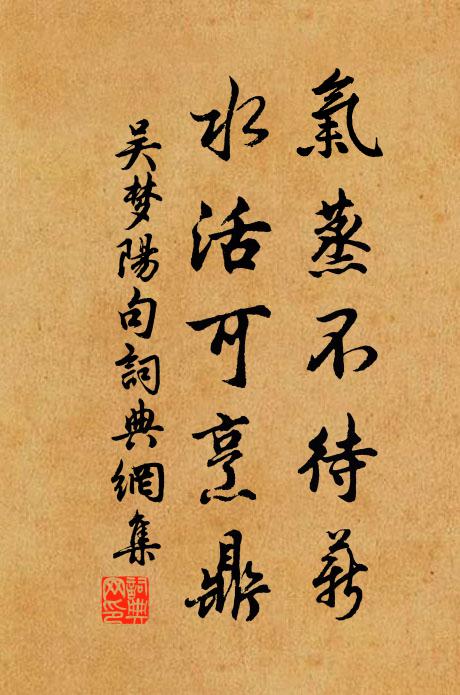 氣蒸不待薪
水活可烹鼎
吴梦陽句詞典網集
詞典网印